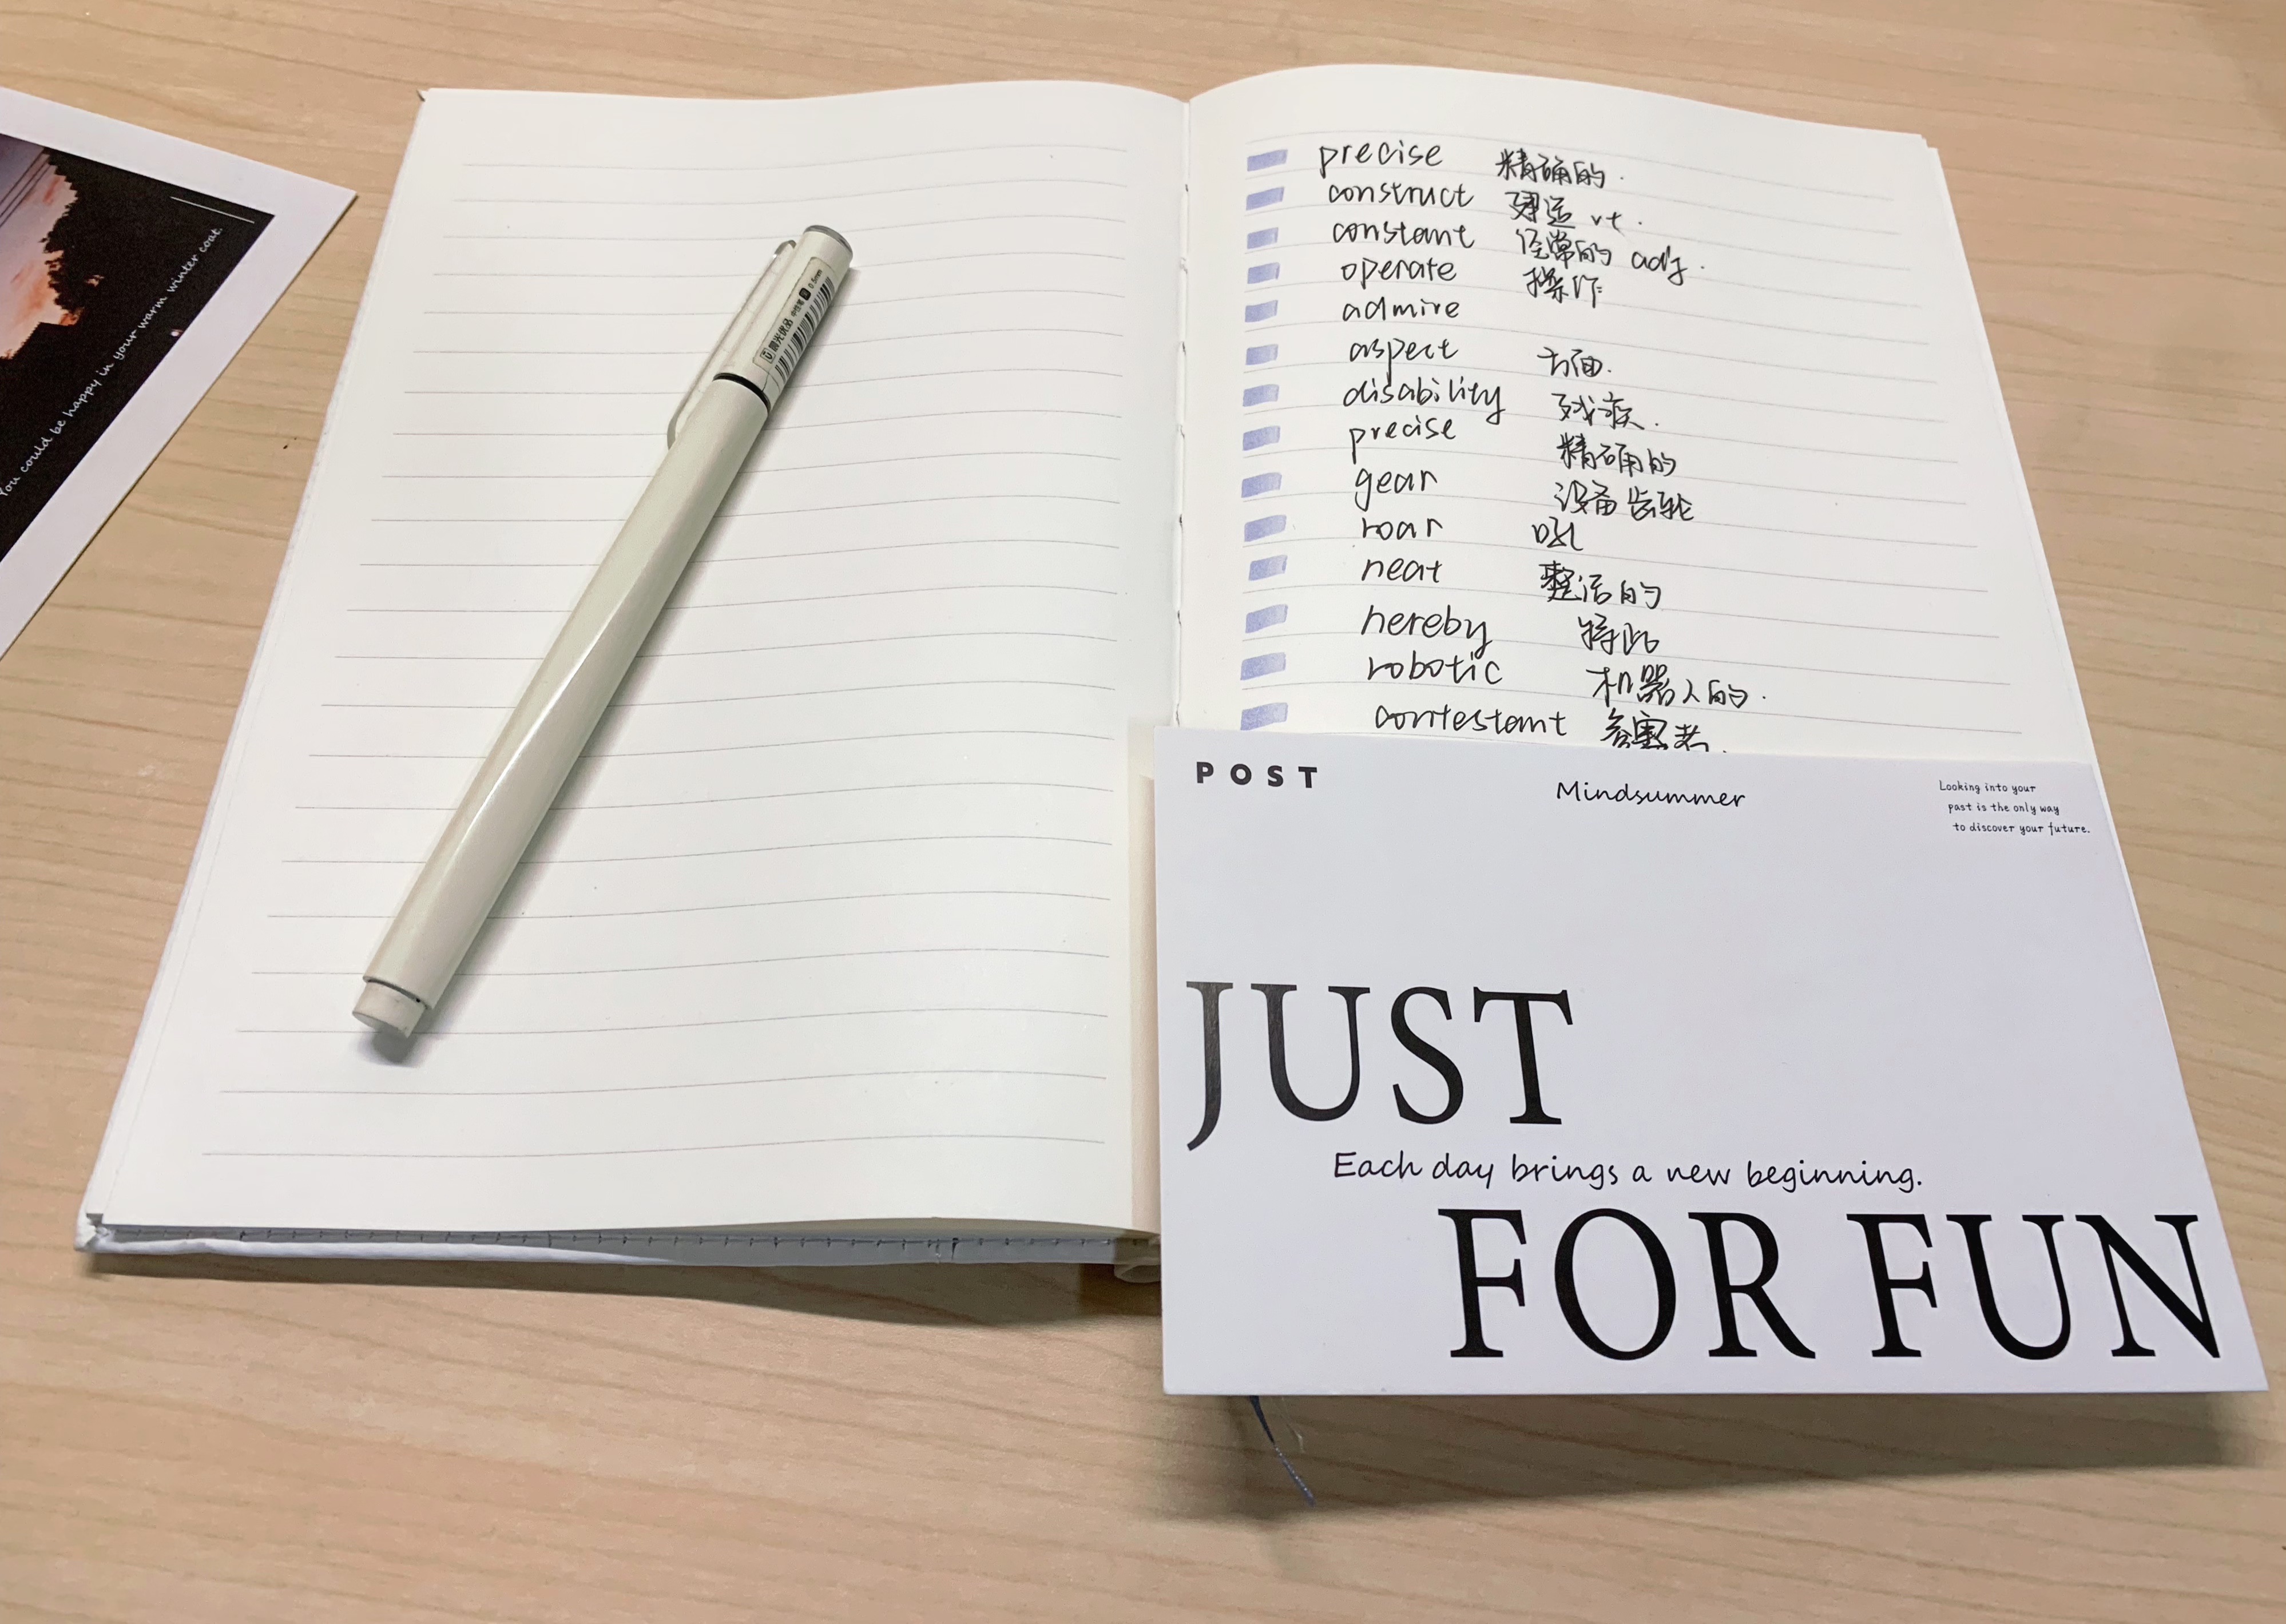 You could be happy in your warm winter coat.
晨光优品 中性笔 0.5mm
precise 精确的.
construct 建造 vt.
constant 经常的 adj.
operate 操作
admire
aspect 方面.
disability 残疾.
precise 精确的
gear 设备 齿轮
roar 吼
neat 整洁的
hereby 特此
robotic 机器人的.
contestant 参赛者.
POST
Mindsummer
Looking into your
past is the only way
to discover your future.
JUST
Each day brings a new beginning.
FOR FUN